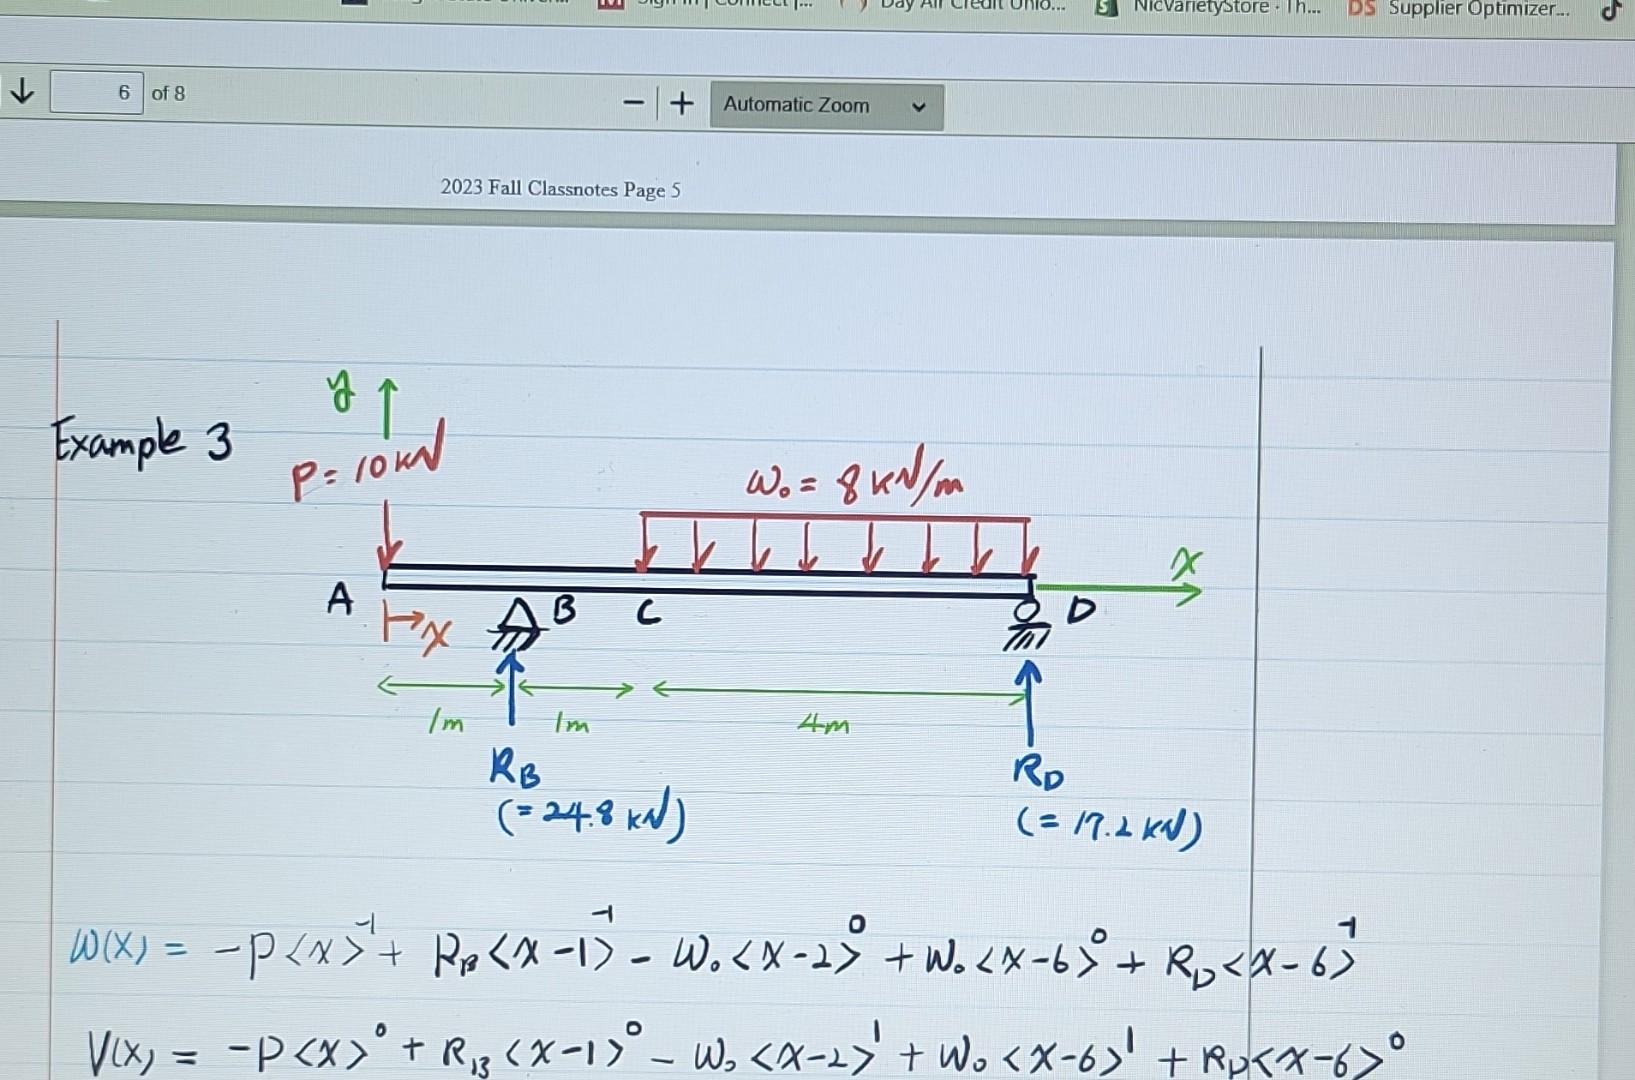 Sign in | Connect |... Day Air Credit Unio... NicVarietyStore - Th... DS Supplier Optimizer...
6 of 8 − + Automatic Zoom
2023 Fall Classnotes Page 5
y
Example 3
P = 10 kN
W₀ = 8 kN/m
x
A B C D
x
1m 1m 4m
R_B R_D
(= 24.8 kN) (= 17.2 kN)
W(x) = -P<x>⁻¹ + R_B<x-1>⁻¹ - W₀<x-2>⁰ + W₀<x-6>⁰ + R_D<x-6>⁻¹
V(x) = -P<x>⁰ + R_B<x-1>⁰ - W₀<x-2>¹ + W₀<x-6>¹ + R_D<x-6>⁰